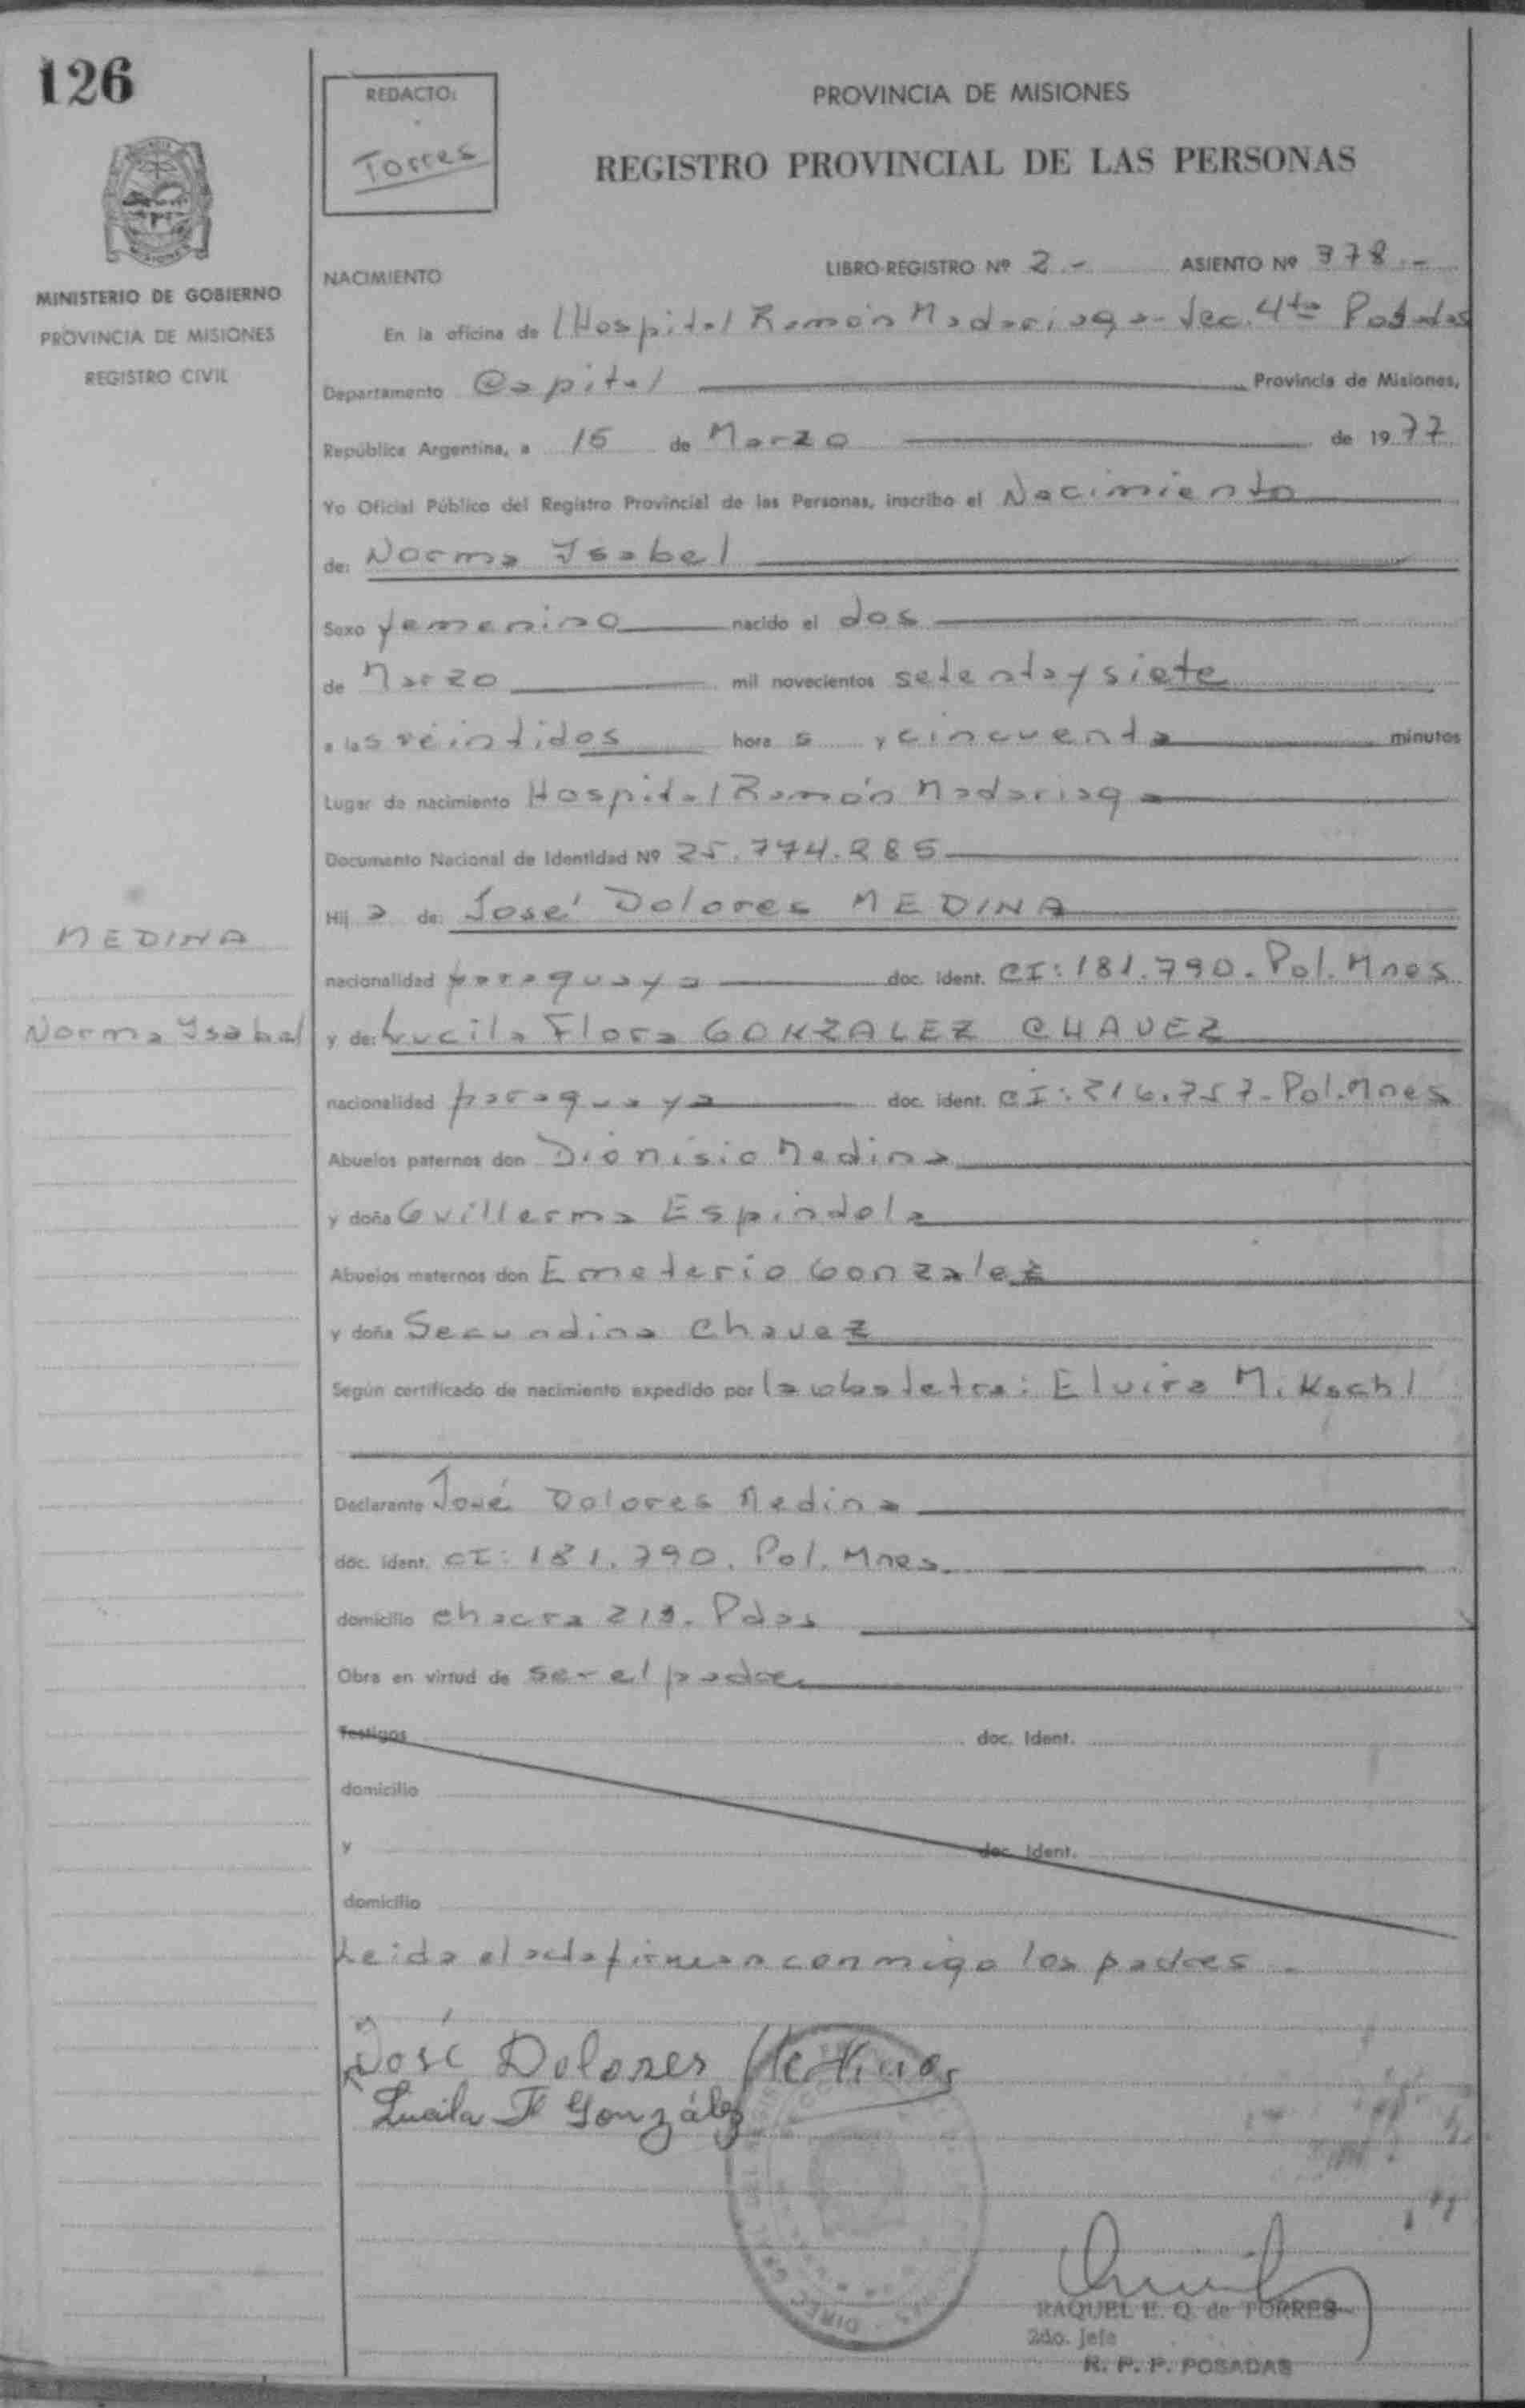 126
REDACTO:
Torres
PROVINCIA DE MISIONES
REGISTRO PROVINCIAL DE LAS PERSONAS
MINISTERIO DE GOBIERNO
PROVINCIA DE MISIONES
REGISTRO CIVIL
NACIMIENTO LIBRO-REGISTRO Nº 2.- ASIENTO Nº 378.-
En la oficina de l Hospital Ramón Madariaga- Sec. 4ta Posadas
Departamento Capital Provincia de Misiones,
República Argentina, a 15 de Marzo de 1977
Yo Oficial Público del Registro Provincial de las Personas, inscribo el Nacimiento
de: Norma Ysabel
Sexo femenino nacido el dos
de Marzo mil novecientos setenta y siete
a las veintidos hora s y cincuenta minutos
Lugar de nacimiento Hospital Ramón Madariaga
Documento Nacional de Identidad Nº 25.774.285
Hij a de: José Dolores MEDINA
nacionalidad paraguaya doc. ident. CI: 181.790. Pol. Mnes
MEDINA
Norma Ysabel
y de: Lucila Flora GONZALEZ CHAVEZ
nacionalidad paraguaya doc. ident. CI: 216.757- Pol. Mnes
Abuelos paternos don Dionisio Medina
y doña Guillerma Espindola
Abuelos maternos don Emeterio Gonzalez
y doña Secundina Chavez
Según certificado de nacimiento expedido por la obstetra: Elvira M. Kschl
Declarante José Dolores Medina
doc. ident. CI: 181.790. Pol. Mnes
domicilio chacra 213. Pdas
Obra en virtud de ser el padre
Testigos doc. Ident.
domicilio
y doc. Ident.
domicilio
Leida el acta firman conmigo los padres.
José Dolores Medina
Lucila F González
RAQUEL E. Q. de TORRES
2do. Jefe
R. P. P. POSADAS